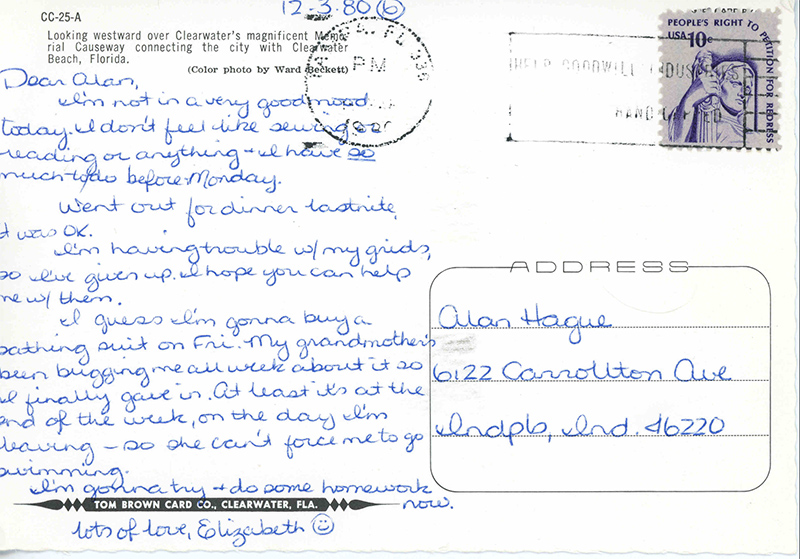 12-3.80 (6)
CC-25-A
Looking westward over Clearwater's magnificent Memorial
rial Causeway connecting the city with Clearwater
Beach, Florida.
(Color photo by Ward Beckett)
FL 336
PM
1980
HELP GOODWILL INDUS
HAND CAPPED
PEOPLE'S RIGHT TO PETITION FOR REDRESS
USA 10c
Dear Alan,
I'm not in a very good mood
today. I don't feel like sewing or
reading or anything + I have so
much to do before Monday.
Went out for dinner lastnite,
it was OK.
I'm having trouble w/ my grids,
so I've given up. I hope you can help
me w/ them.
I guess I'm gonna buy a
bathing suit on Fri. My grandmother's
been bugging me all week about it so
I finally gave in. At least it's at the
end of the week, on the day I'm
leaving – so she can't force me to go
swimming.
I'm gonna try + do some homework
now.
TOM BROWN CARD CO., CLEARWATER, FLA.
lots of love, Elizabeth ☺
ADDRESS
Alan Hague
6122 Carrollton Ave
Indpls, Ind. 46220